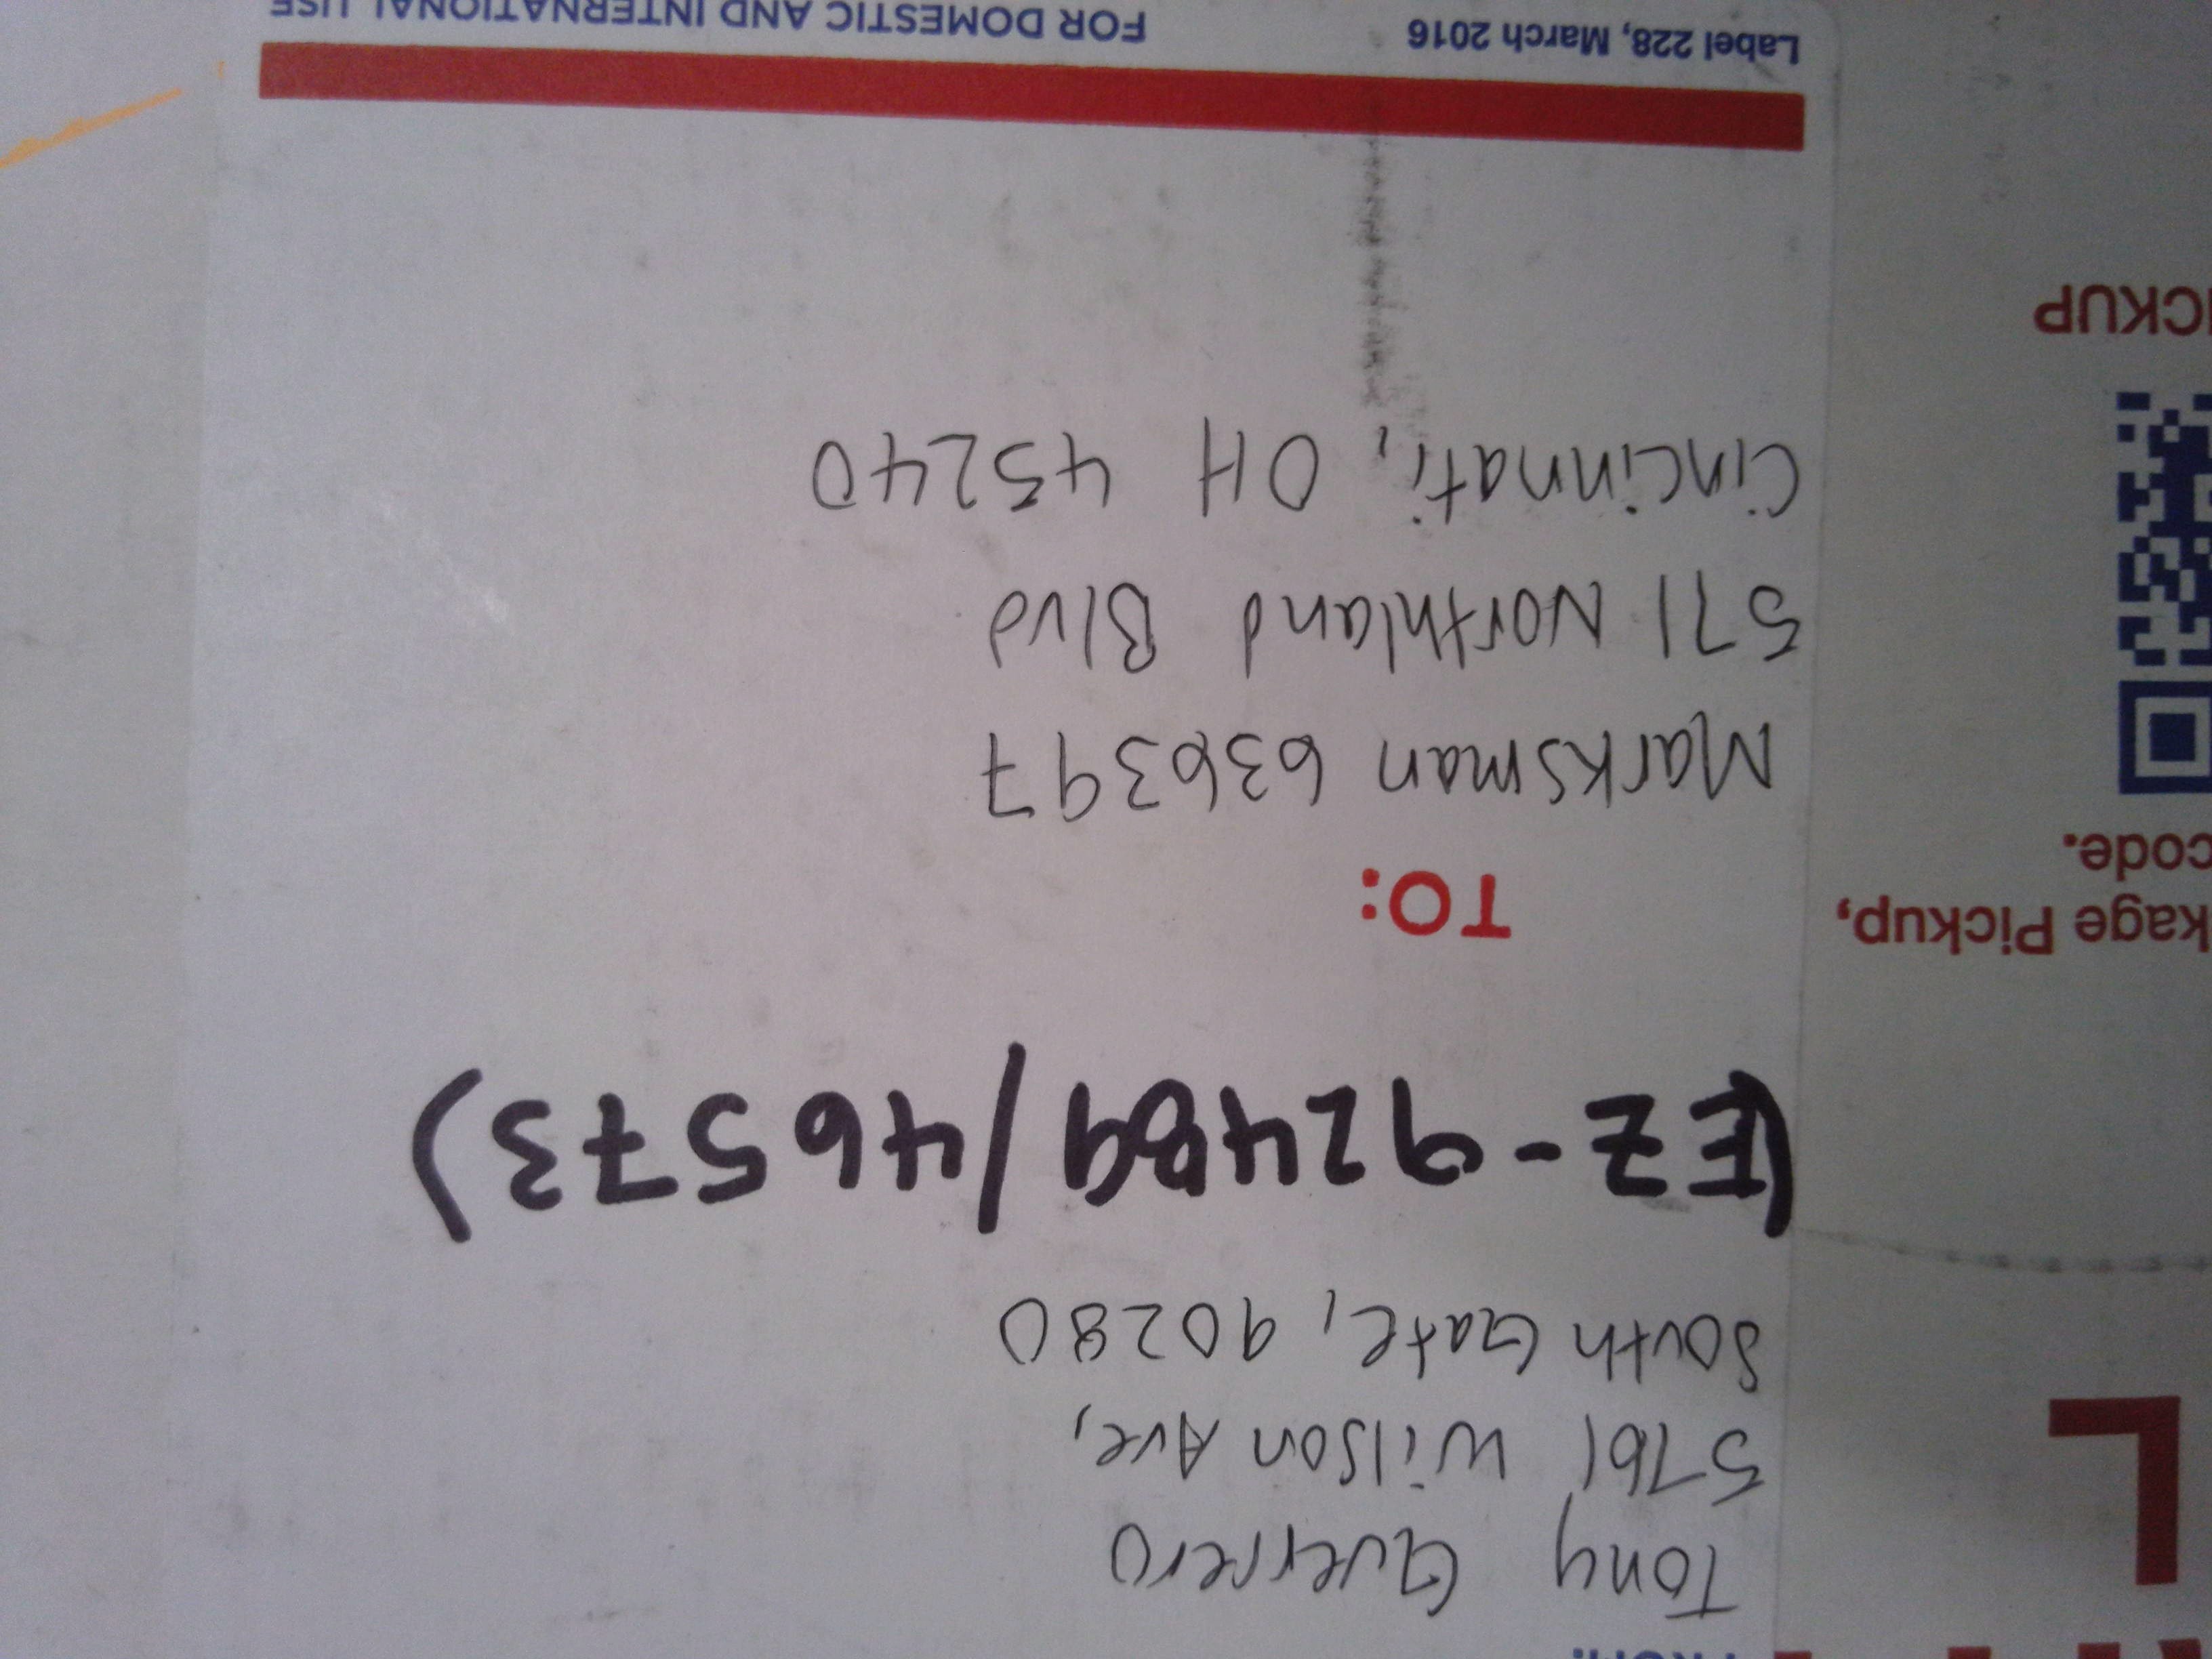 FROM:
Tony Guerrero
5761 Wilson Ave,
South Gate, 90280
(EZ-92489/46573)
TO:
Marksman 636397
571 Northland Blvd
Cincinnati, OH 45240
Label 228, March 2016 FOR DOMESTIC AND INTERNATIONAL USE
L
kage Pickup,
code.
ICKUP